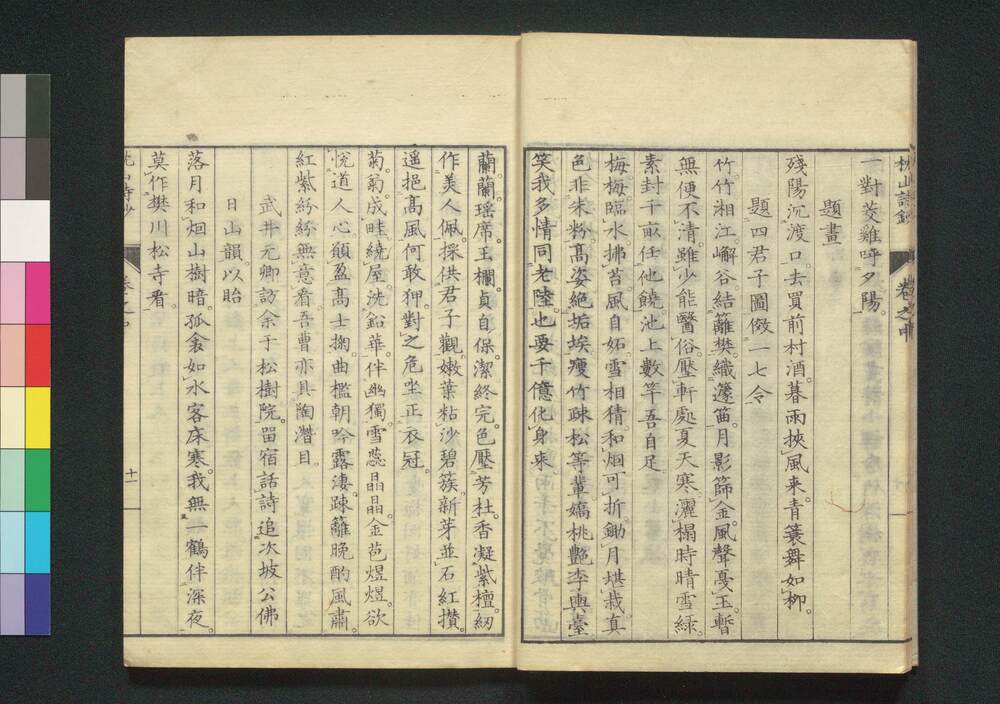 桃山詩鈔 卷之中
一對茭雞呼夕陽。
題畫
殘陽沉渡口去買前村酒。暮雨挾風来。青蓑舞如柳。
題四君子圖傚一七令
竹。竹。湘江。嶰谷。結籬樊。織籧䇟。月影篩金。風聲戛玉。暫
無便不清。雖少能醫俗。壓軒處夏天寒。灑榻時晴雪綠。
素封千畝任他饒。池上數竿吾自足。
梅。梅。臨水。拂苔。風自妬。雪相猜。和烟可折。鋤月堪栽。真
色非朱粉。高姿絕垢埃。瘦竹疎松等輩。嬌桃艷李輿臺。
笑我多情同老陸。也要千億化身来。
蘭。蘭。瑶席。玉欄。貞自保。潔終完。色壓芳杜。香凝紫檀。紉
作美人佩。採供君子觀。嫩葉粘沙碧簇。新芽並石紅攅。
遥挹高風何敢狎。對之危坐正衣冠。
菊。菊。成畦。繞屋。洗鉛華。伴幽獨。雪蕊晶晶。金葩煜煜。欲
悅道人心。頗盈高士掬。曲檻朝吟露淒。疎籬晚酌風肅。
紅紫紛紛無意看。吾曹亦具陶潛目。
武井元卿訪余于松樹院。留宿話詩。追次坡公佛
日山韻。以貽
落月和烟山樹暗。孤衾如水客床寒。我無一鶴伴深夜。
莫作樊川松寺看。
十一